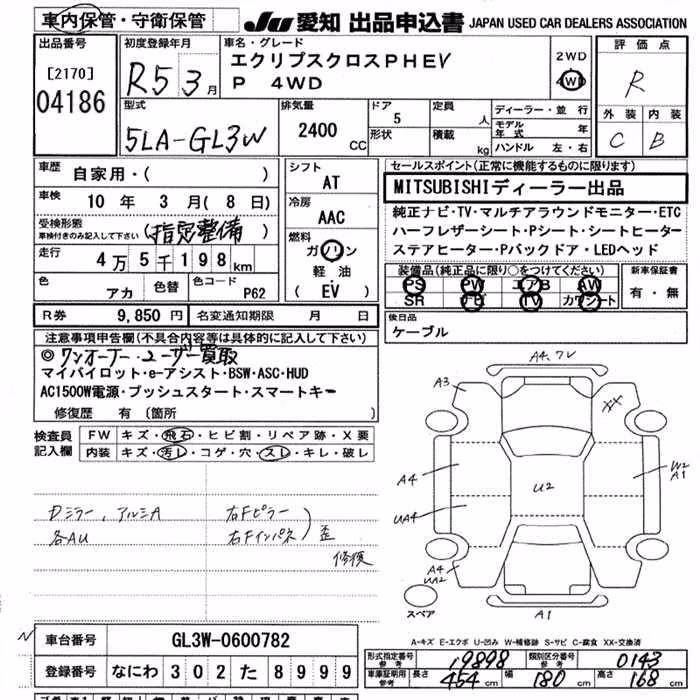 車内保管・守衛保管
JU 愛知 出品申込書 JAPAN USED CAR DEALERS ASSOCIATION
出品番号
[2170]
04186
初度登録年月
R5 3月
車名・グレード
エクリプスクロスPHEV
P 4WD
2WD
4WD
評価点
R
外装 内装
C B
型式
5LA-GL3W
排気量
2400 CC
ドア
5
形状
定員
人
積載
kg
ディーラー・並行
モデル年式 年
ハンドル 左・右
車歴
自家用・( )
車検
10年 3月(8日)
受検形態
車検付きのみ記入して下さい
(指定整備)
走行
4万5千198km
色
アカ
色替
色コード
P62
シフト
AT
冷房
AAC
燃料
ガソリン
軽油
(EV)
セールスポイント(正常に機能するものに限ります)
MITSUBISHIディーラー出品
純正ナビ・TV・マルチアラウンドモニター・ETC
ハーフレザーシート・Pシート・シートヒーター
ステアヒーター・Pバックドア・LEDヘッド
装備品(純正品に限り○をつけてください)
PS PW エアB AW
SR ナビ TV カワシート
新車保証書
有・無
R券 9,850円
名変通知期限 月 日
後日品
ケーブル
注意事項申告欄(不具合内容等は具体的に記入して下さい)
◎ワンオーナー・ユーザー買取
マイパイロット・e-アシスト・BSW・ASC・HUD
AC1500W電源・プッシュスタート・スマートキー
修復歴 有(箇所
検査員記入欄
FW キズ・飛石・ヒビ割・リペア跡・X要
内装 キズ・汚レ・コゲ・穴・スレ・キレ・破レ
Dミラー、アルミA
各AU
右Fピラー
右Fインパネ
歪
修複
A4,7V
A3
XX
A4
U2
W2
A1
UA4
A4
UA2
スペア
A1
A-キズ E-エクボ U-凹み W-補修跡 S-サビ C-腐食 XX-交換済
N
車台番号 GL3W-0600782
登録番号 なにわ 302 た 8999
形式指定番号
参考
19898
類別区分番号
参考
0143
車庫証明用
参考
長さ 454cm 幅 180cm 高さ 168cm